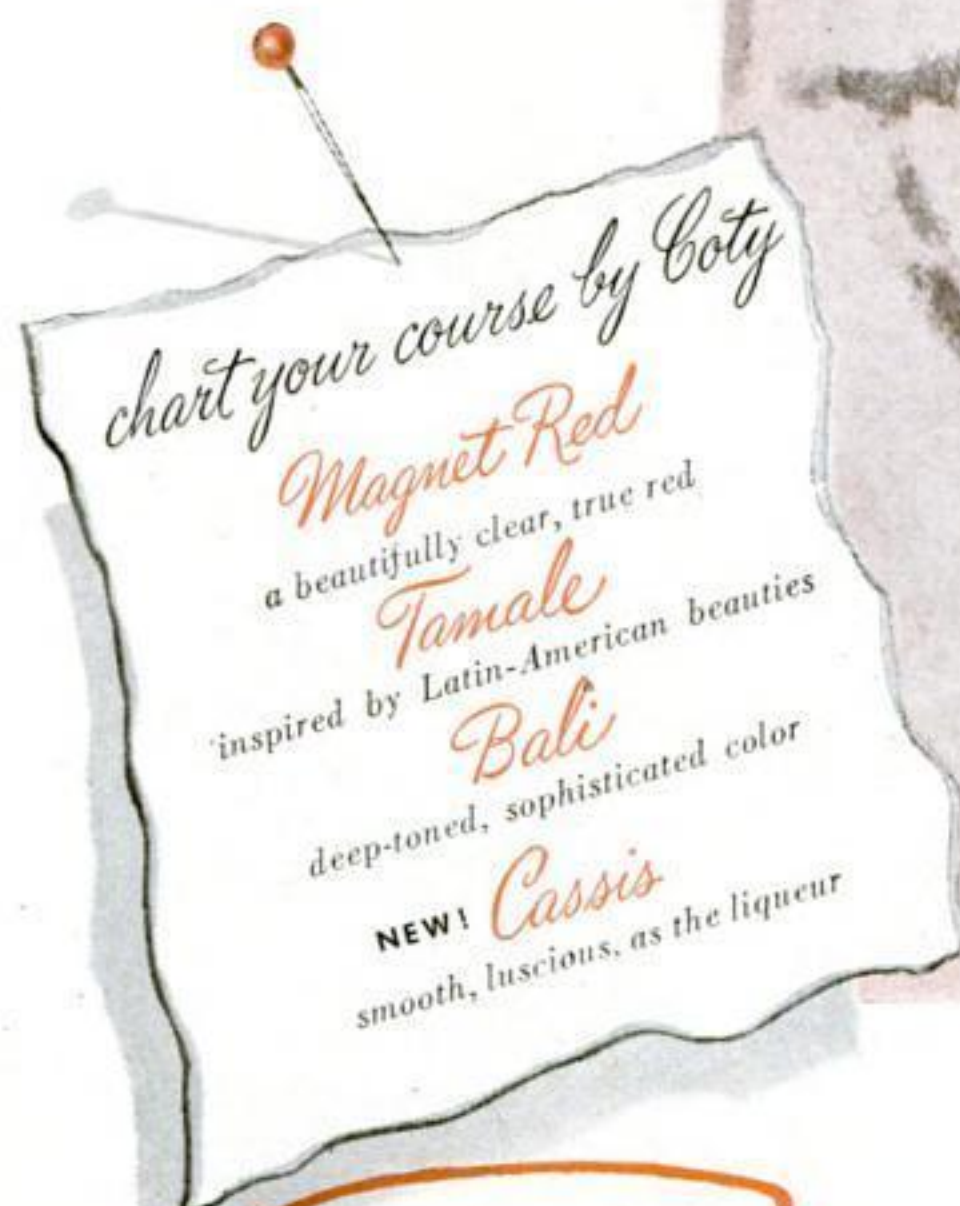 chart your course by Coty
Magnet Red
a beautifully clear, true red
Tamale
inspired by Latin-American beauties
Bali
deep-toned, sophisticated color
NEW! Cassis
smooth, luscious, as the liqueur